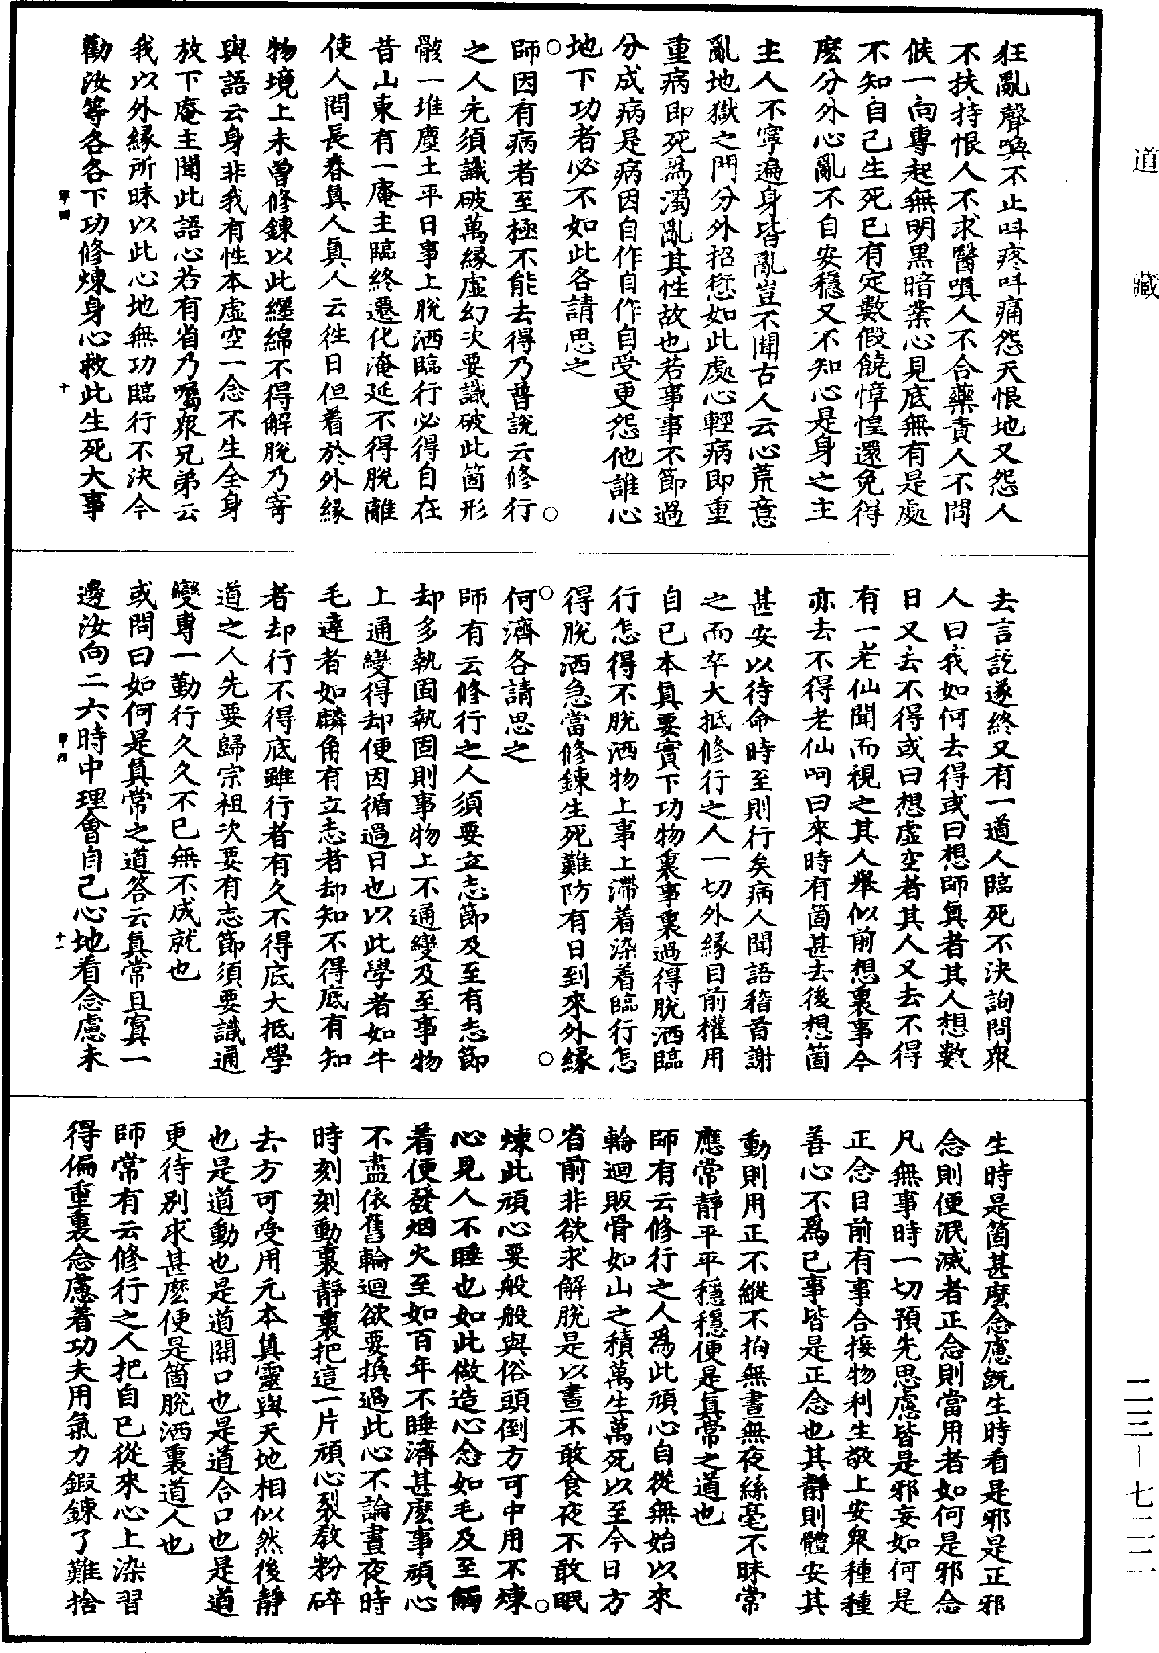 道藏
狂亂聲喚不止叫疼叫痛怨天恨地又怨人
不扶持恨人不求醫嗔人不合藥責人不問
候一向專起無明黑暗業心見底無有是處
不知自己生死已有定數假饒慞惶還免得
麽分外心亂不自安穩又不知心是身之主
主人不寧遍身皆亂豈不聞古人云心荒意
亂地獄之門分外招愆如此處心輕病即重
重病即死爲濁亂其性故也若事事不節過
分成病是病因自作自作自受更怨他誰心
地下功者必不如此各請思之
師因有病者至極不能去得乃普說云修行
之人先須識破萬緣虛幻次要識破此箇形
骸一堆塵土平日事上脫洒臨行必得自在
昔山東有一庵主臨終遷化淹延不得脫離
使人問長春真人真人云徃日但着於外緣
物境上未曾修鍊以此纏綿不得解脫乃寄
與語云身非我有性本虛空一念不生全身
放下庵主聞此語心若有省乃囑衆兄弟云
我以外緣所昧以此心地無功臨行不決今
勸汝等各各下功修煉身心救此生死大事
十
去言訖遂終又有一道人臨死不決詢問衆
人曰我如何去得或曰想師真者其人想數
日又去不得或曰想虛空者其人又去不得
有一老仙聞而視之其人舉似前想裏事今
亦去不得老仙呵曰來時有箇甚去後想箇
甚安以待命時至則行矣病人聞語稽首謝
之而卒大抵修行之人一切外緣目前權用
自己本真要實下功物裏事裏過得脫洒臨
行怎得不脫洒物上事上滯着染着臨行怎
得脫洒急當修鍊生死難防有日到來外緣
何濟各請思之
師有云修行之人須要立志節及至有志節
却多執固執固則事物上不通變及至事物
上通變得却便因循過日也以此學者如牛
毛達者如麟角有立志者却知不得底有知
者却行不得底雖行者有久不得底大抵學
道之人先要歸宗祖次要有志節須要識通
變專一勤行久久不已無不成就也
或問曰如何是真常之道答云真常且寘一
邊汝向二六時中理會自己心地看念慮未
十一
生時是箇甚麽念慮旣生時看是邪是正邪
念則便泯滅者正念則當用者如何是邪念
凡無事時一切預先思慮皆是邪妄如何是
正念目前有事合接物利生敬上安衆種種
善心不爲己事皆是正念也其靜則體安其
動則用正不縱不拘無晝無夜絲毫不昧常
應常靜平平穩穩便是真常之道也
師有云修行之人爲此頑心自從無始以來
輪迴販骨如山之積萬生萬死以至今日方
省前非欲求解脫是以晝不敢食夜不敢眠
煉此頑心要般般與俗頭倒方可中用不煉
心見人不睡也如此做造心念如毛及至觸
着便發烟火至如百年不睡濟甚麽事頑心
不盡依舊輪迴欲要換過此心不論晝夜時
時刻刻動裏靜裏把這一片頑心裂教粉碎
去方可受用元本真靈與天地相似然後靜
也是道動也是道開口也是道合口也是道
更待别求甚麽便是箇脫洒裏道人也
師常有云修行之人把自己從來心上染習
得偏重裏念慮着功夫用氣力鍜鍊了難捨
二三—七二二